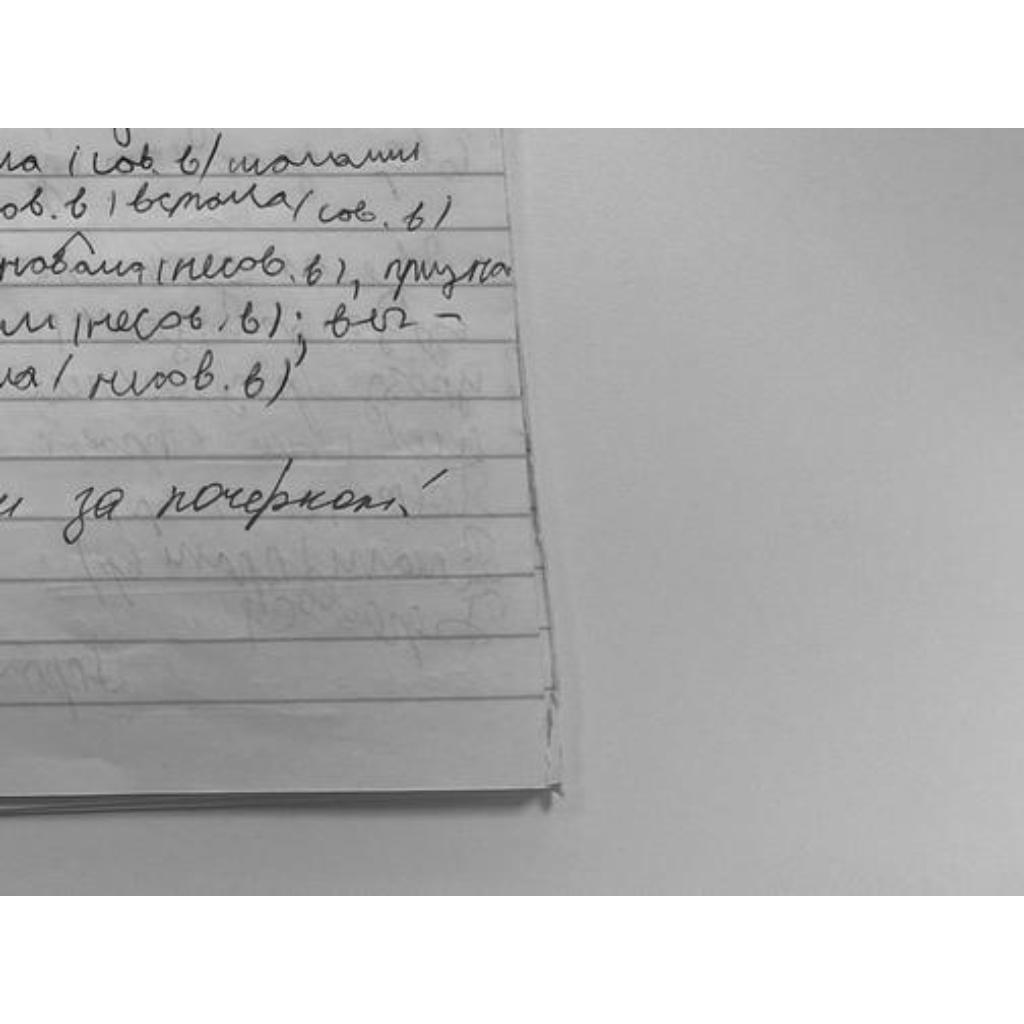 ла (сов. в)
ов. в) встала (сов. в)
новала (несов. в), призна
ли (несов. в); вы-
ла (несов. в)
и за почерком!